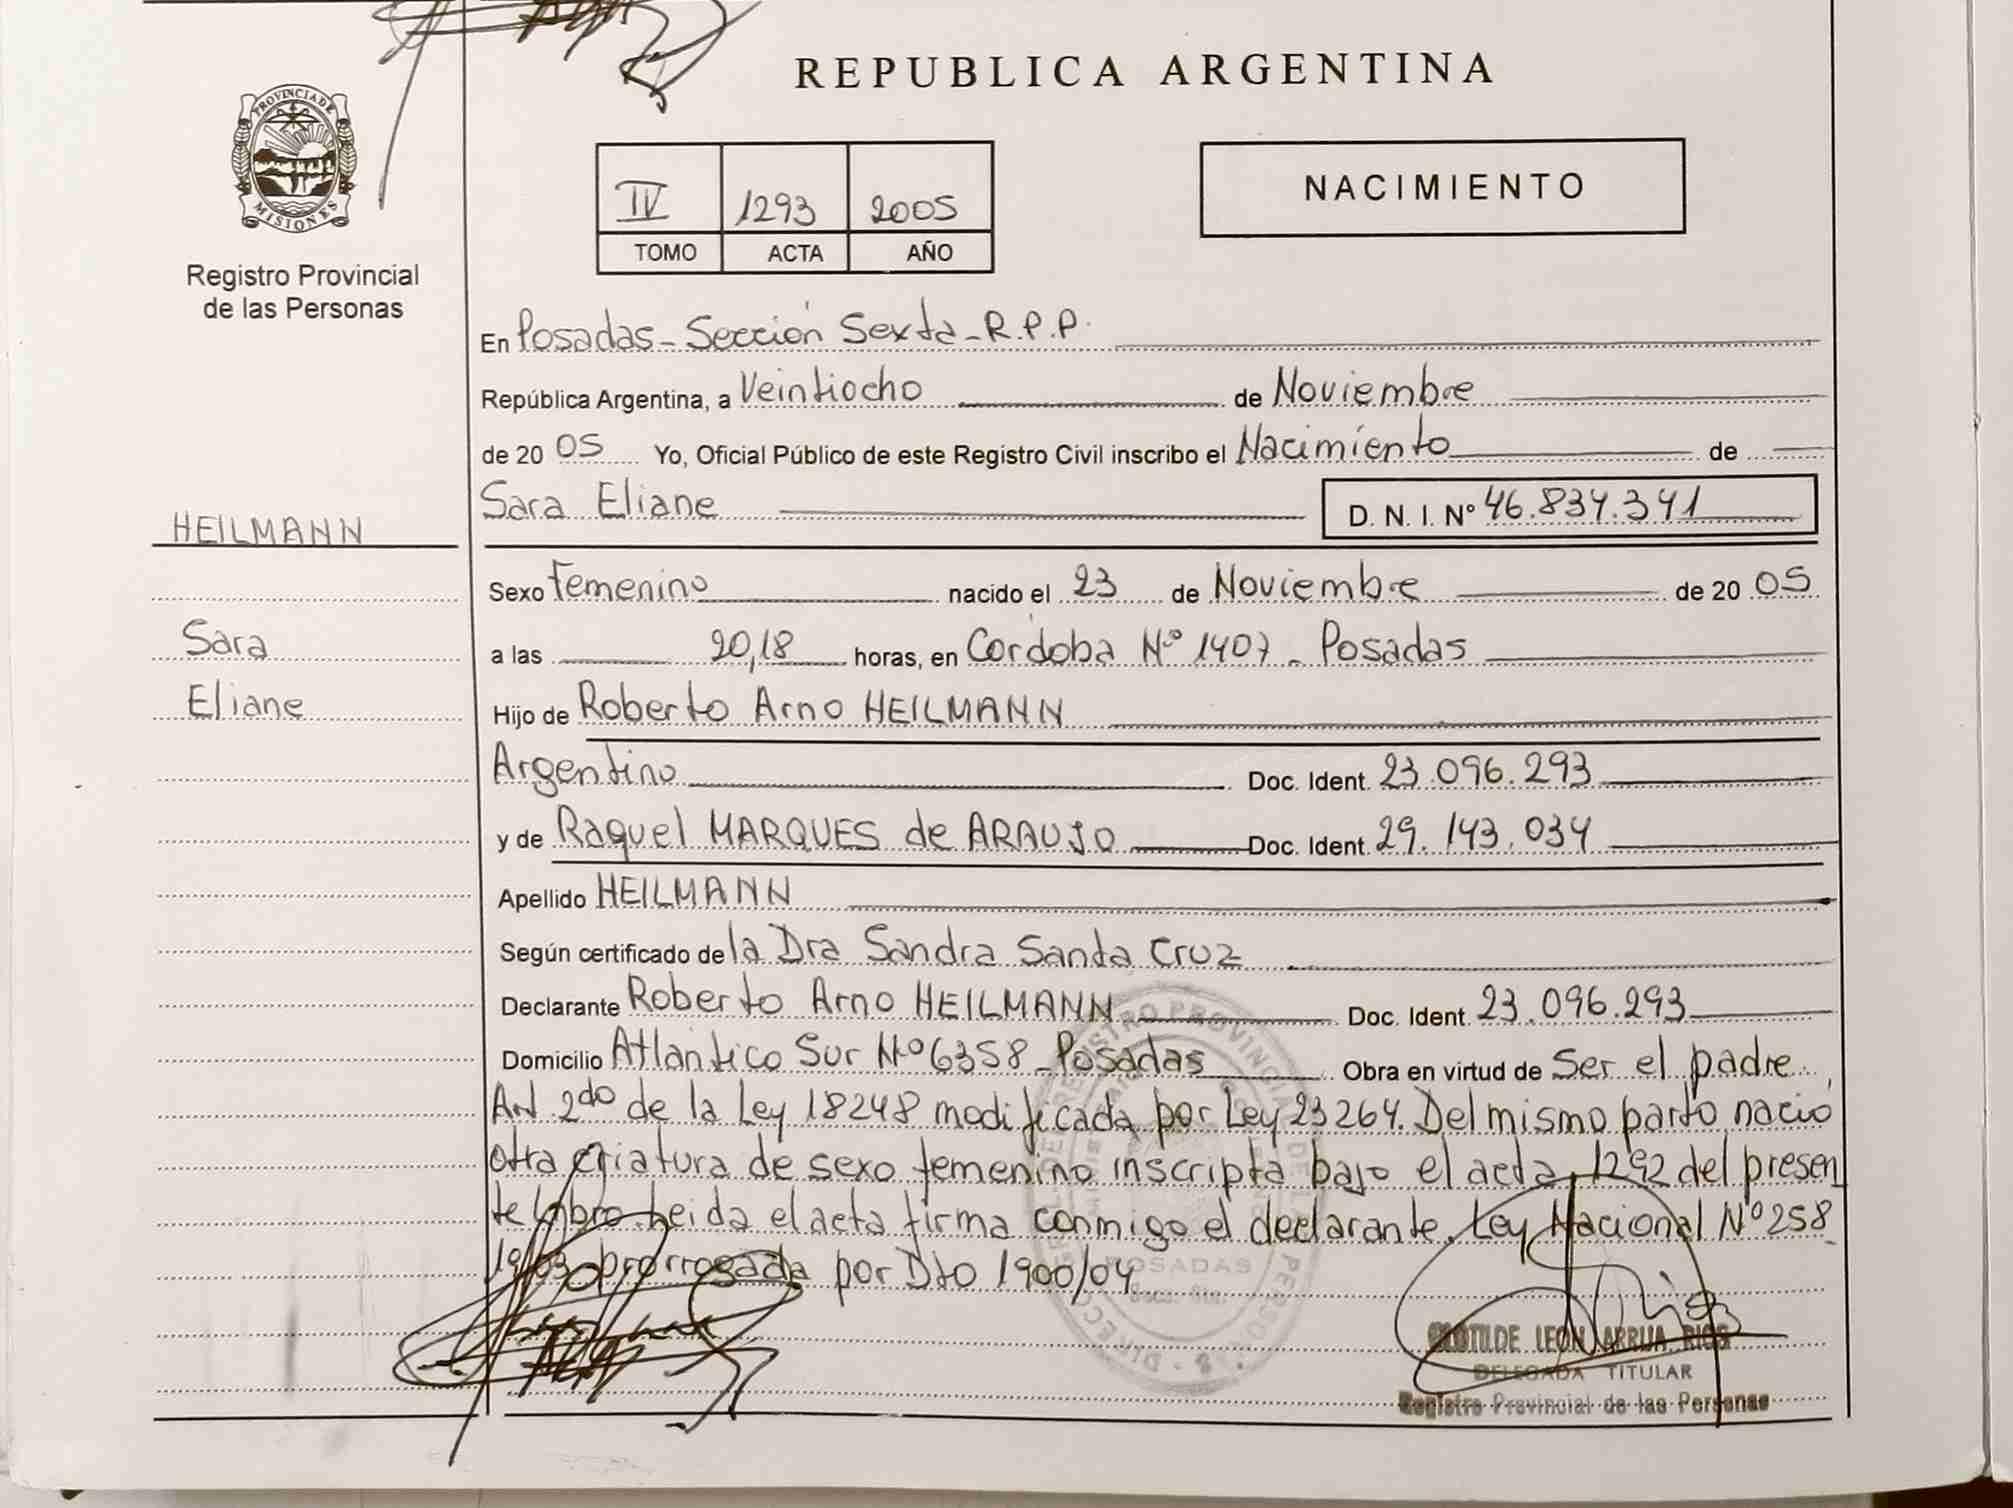 REPUBLICA ARGENTINA
PROVINCIA DE
MISIONES
Registro Provincial
de las Personas
IV 1293 2005
TOMO ACTA AÑO
NACIMIENTO
En Posadas - Sección Sexta - R.P.P.
República Argentina, a Veintiocho de Noviembre
de 20 05 Yo, Oficial Público de este Registro Civil inscribo el Nacimiento de
Sara Eliane D. N. I. Nº 46.834.341
HEILMANN
Sexo Femenino nacido el 23 de Noviembre de 20 05
Sara
a las 20,18 horas, en Cordoba Nº 1407 - Posadas
Eliane
Hijo de Roberto Arno HEILMANN
Argentino Doc. Ident. 23.096.293
y de Raquel MARQUES de ARAUJO Doc. Ident. 29.143.034
Apellido HEILMANN
Según certificado de la Dra Sandra Santa Cruz
Declarante Roberto Arno HEILMANN Doc. Ident. 23.096.293
Domicilio Atlantico Sur Nº 6358 - Posadas Obra en virtud de Ser el padre,
Art. 2do de la Ley 18248 modificada por Ley 23264. Del mismo parto nacio
otra criatura de sexo femenino inscripta bajo el acta 1292 del presen
te libro. Leida el acta firma conmigo el declarante. Ley Nacional Nº 258
19/03 prorrogada por Dto 1900/04
POSADAS
CLOTILDE LEON ARRUA RIOS
DELEGADA TITULAR
Registro Provincial de las Personas